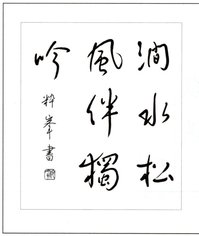 澗水松
風伴獨
吟
粹峯書